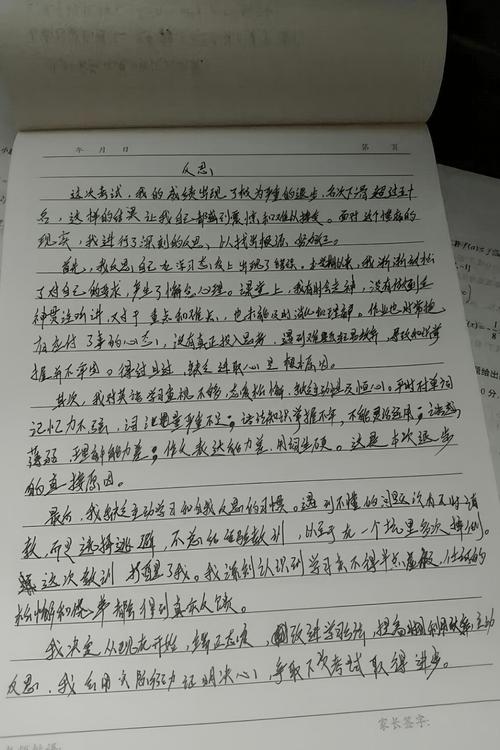 年 月 日 第 页
反思
这次考试,我的成绩出现了较为严重的退步,名次下滑超过五十
名,这样的结果让我自己都感到震惊和难以接受。面对这个惨痛的
现实,我进行了深刻的反思,以找出根源,努力改正。
首先,我反思自己在学习态度上出现了错误。本学期以来,我渐渐放松
了对自己的要求,产生了懈怠心理。课堂上,我有时会走神,没有做到全
神贯注听讲,对于重点和难点,也未能及时消化和理解。作业也时常抱
有应付了事的心态,没有真正投入思考,遇到难题轻易放弃,导致知识掌
握并不牢固。得过且过,缺乏进取心是根本原因。
其次,我对英语学习重视不够,态度松懈,缺乏动力与恒心。平时对单词
记忆力不强,词汇量严重不足;语法知识掌握不牢,不能灵活运用;语感
薄弱,理解能力差;作文表达能力差,用词生硬。这是本次退步
的直接原因。
最后,我缺乏主动学习和自我反思的习惯。遇到不懂的问题没有及时请
教,而是选择逃避,不总结经验教训,以至于在一个坑里多次摔倒。
这次教训打醒了我。我深刻认识到学习来不得半点虚假,任何的
松懈和侥幸都会得到真实反馈。
我决定从现在开始,端正态度,改进学习方法,提高利用效率,主动
反思,我会用实际行动证明决心,争取下次考试取得进步。
家长签字: